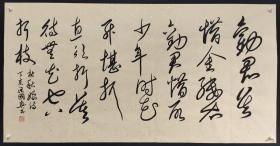 勸君莫
惜金縷衣
勸君惜取
少年時花
開堪折
直須折莫
待無花空
折枝
杜秋娘詩
丁亥